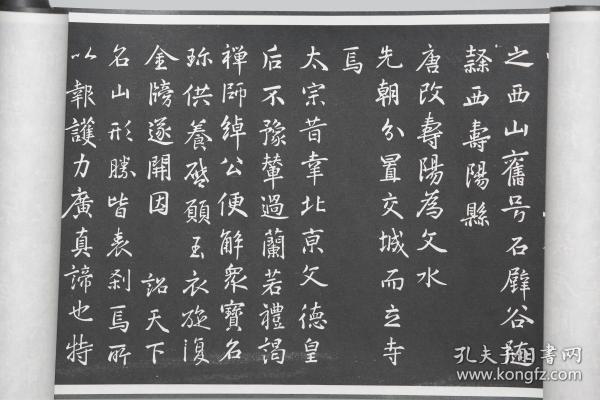 之西山舊号石壁谷隨
隸西壽陽縣
唐改壽陽為文水
先朝分置交城而立寺
焉
太宗昔幸北京文德皇
后不豫輦過蘭若禮謁
禪師綽公便解眾寶名
珍供養啓願玉衣旋復
金牓遂開因 詔天下
名山形勝皆表剎焉所
以報護力廣真諦也特
孔夫子旧书网
www.kongfz.com